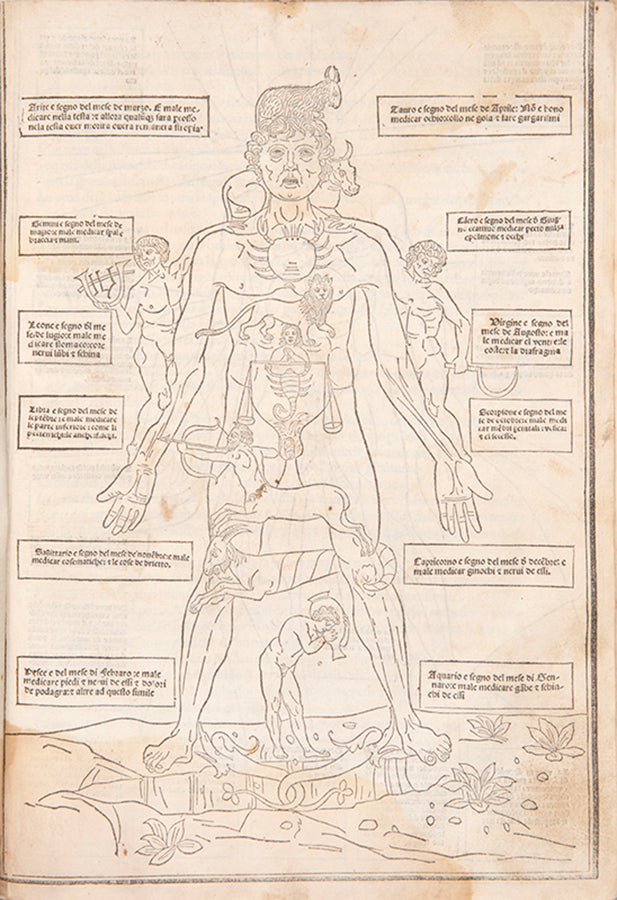 Ariete e segno del mese de marzo. E male me-
dicare nella testa ⁊ allora qualũq̃ sara ꝑcosso
nela testa over morira overa remanera stropia
Tauro e segno del mese de Aprile: Nõ e bono
medicar ochio:collo ne gola ⁊ fare gargarismi
Gemini e segno del mese de
magio:e male medicar spale
braccia:⁊ mani.
e segno del mese
medicar pecto milza
epolmone ⁊ ochi
Leone e segno dl me
se:de luglo:⁊ male me
dicar stomaco:core
nerui lũbi ⁊ schina
Virgine e segno del
mese de Augosto: e ma
le medicar el ventre:le
coste:⁊ la diafragma
Libra e segno del mese de
septẽbre:e male medicare
le parte inferiore: come li
Scorpione e segno del me
se de octobre:e male medi
car mẽbri genitali:
Sagittario e segno del mese de nouẽbre:e male
medicar cose:natiche: ⁊ le cose de drietto.
Capricorno e segno del mese d̃ decẽbre: e
male medicar ginochi ⁊ nerui de essi.
Pesce e del mese di Febraro:e male
medicare piedi ⁊ nerui de essi ⁊ dolori
de podagra:⁊ altre ad questo simile
Aquario e segno del mese di Gen-
naro:e male medicare gãbe ⁊ schin-
chi de essi